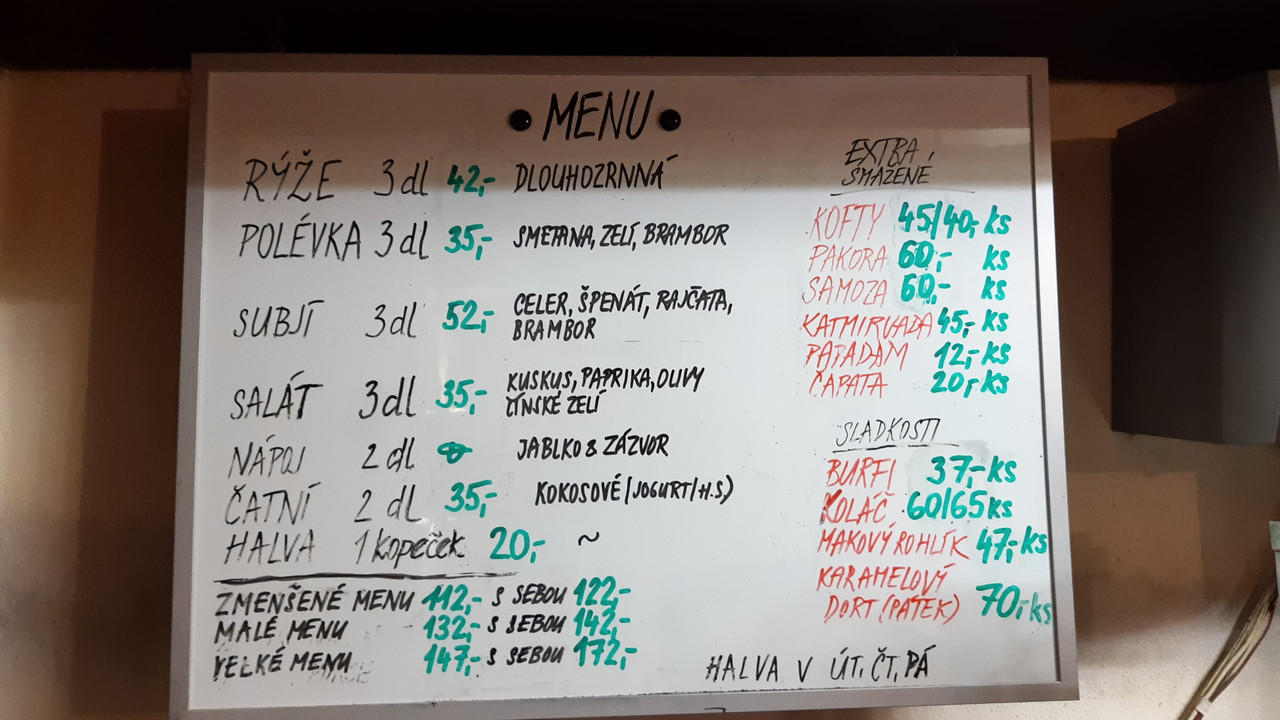 MENU
RÝŽE 3dl 42,- DLOUHOZRNNÁ
POLÉVKA 3dl 35,- SMETANA, ZELÍ, BRAMBOR
SUBJÍ 3dl 52,- CELER, ŠPENÁT, RAJČATA,
BRAMBOR
SALÁT 3dl 35,- KUSKUS, PAPRIKA, OLIVY
ČÍNSKÉ ZELÍ
NÁPOJ 2dl JABLKO & ZÁZVOR
ČATNÍ 2dl 35,- KOKOSOVÉ (JOGURT/H.S.)
HALVA 1 kopeček 20,- ~
ZMENŠENÉ MENU 112,- S SEBOU 122,-
MALÉ MENU 132,- S SEBOU 142,-
VELKÉ MENU 147,- S SEBOU 172,-
EXTRA,
SMAŽENÉ
KOFTY 45/40,- ks
PAKORA 60,- ks
SAMOZA 60,- ks
KATMIRVADA 45,- ks
PAPADAM 12,- ks
ČAPATA 20,- ks
SLADKOSTI
BURFI 37,- ks
KOLÁČ 60/65 ks
MAKOVÝ ROHLÍK 47,- ks
KARAMELOVÝ
DORT (PÁTEK) 70,- ks
HALVA V ÚT, ČT, PÁ